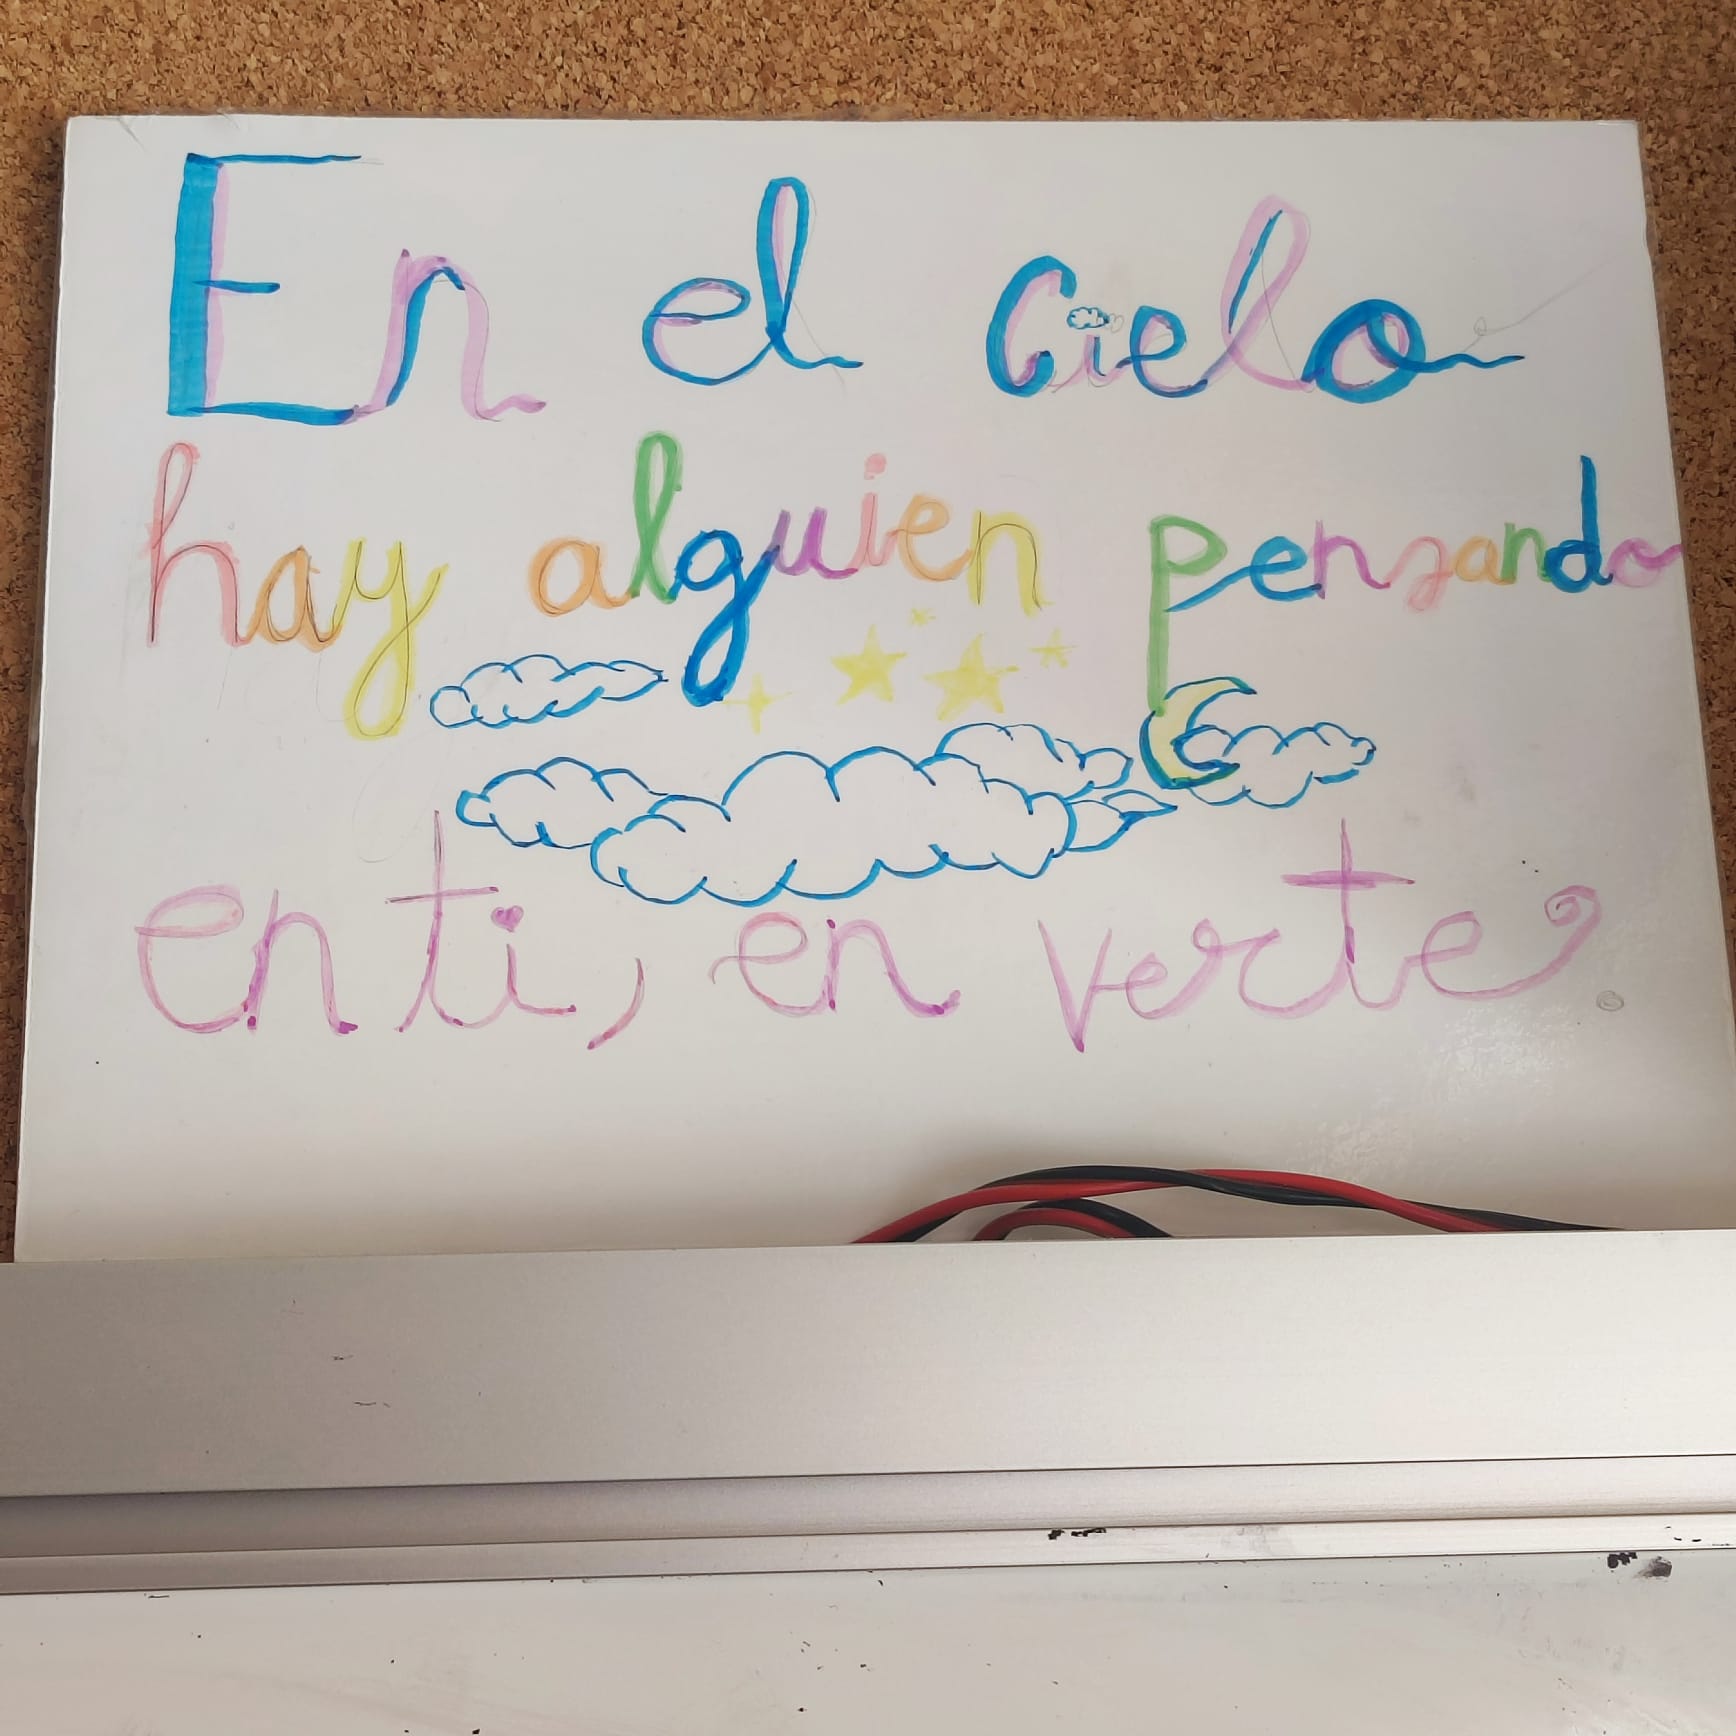 En el Cielo
hay alguien pensando
en ti, en verte.